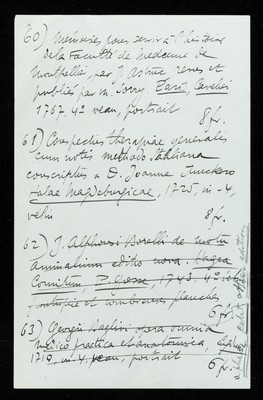 60) Mémoires pour servir à l'histoire
de la Faculté de Medecine de
Montpellier par J. Astruc revus et
publiés par M. Lorry Paris, Cavelier
1767, 4º veau, portrait
8 fr.
61) Conspectus therapiae generalis
cum notis methodo Stahliana
conscriptus a D. Joanne Junckero
Halae Magdeburgicae, 1725, in-4,
velin
8 fr.
62) J. Alphonsi Borelli de motu
Animalium editio nova. Hagae
Comitum, P. Gosse, 1743, 4º
frontispice et nombreuses planches
6 fr.
63) Georgii Baglivi opera omnia
medico practica et anatomica,
1710, in-4, veau, portrait
6 fr.
edition